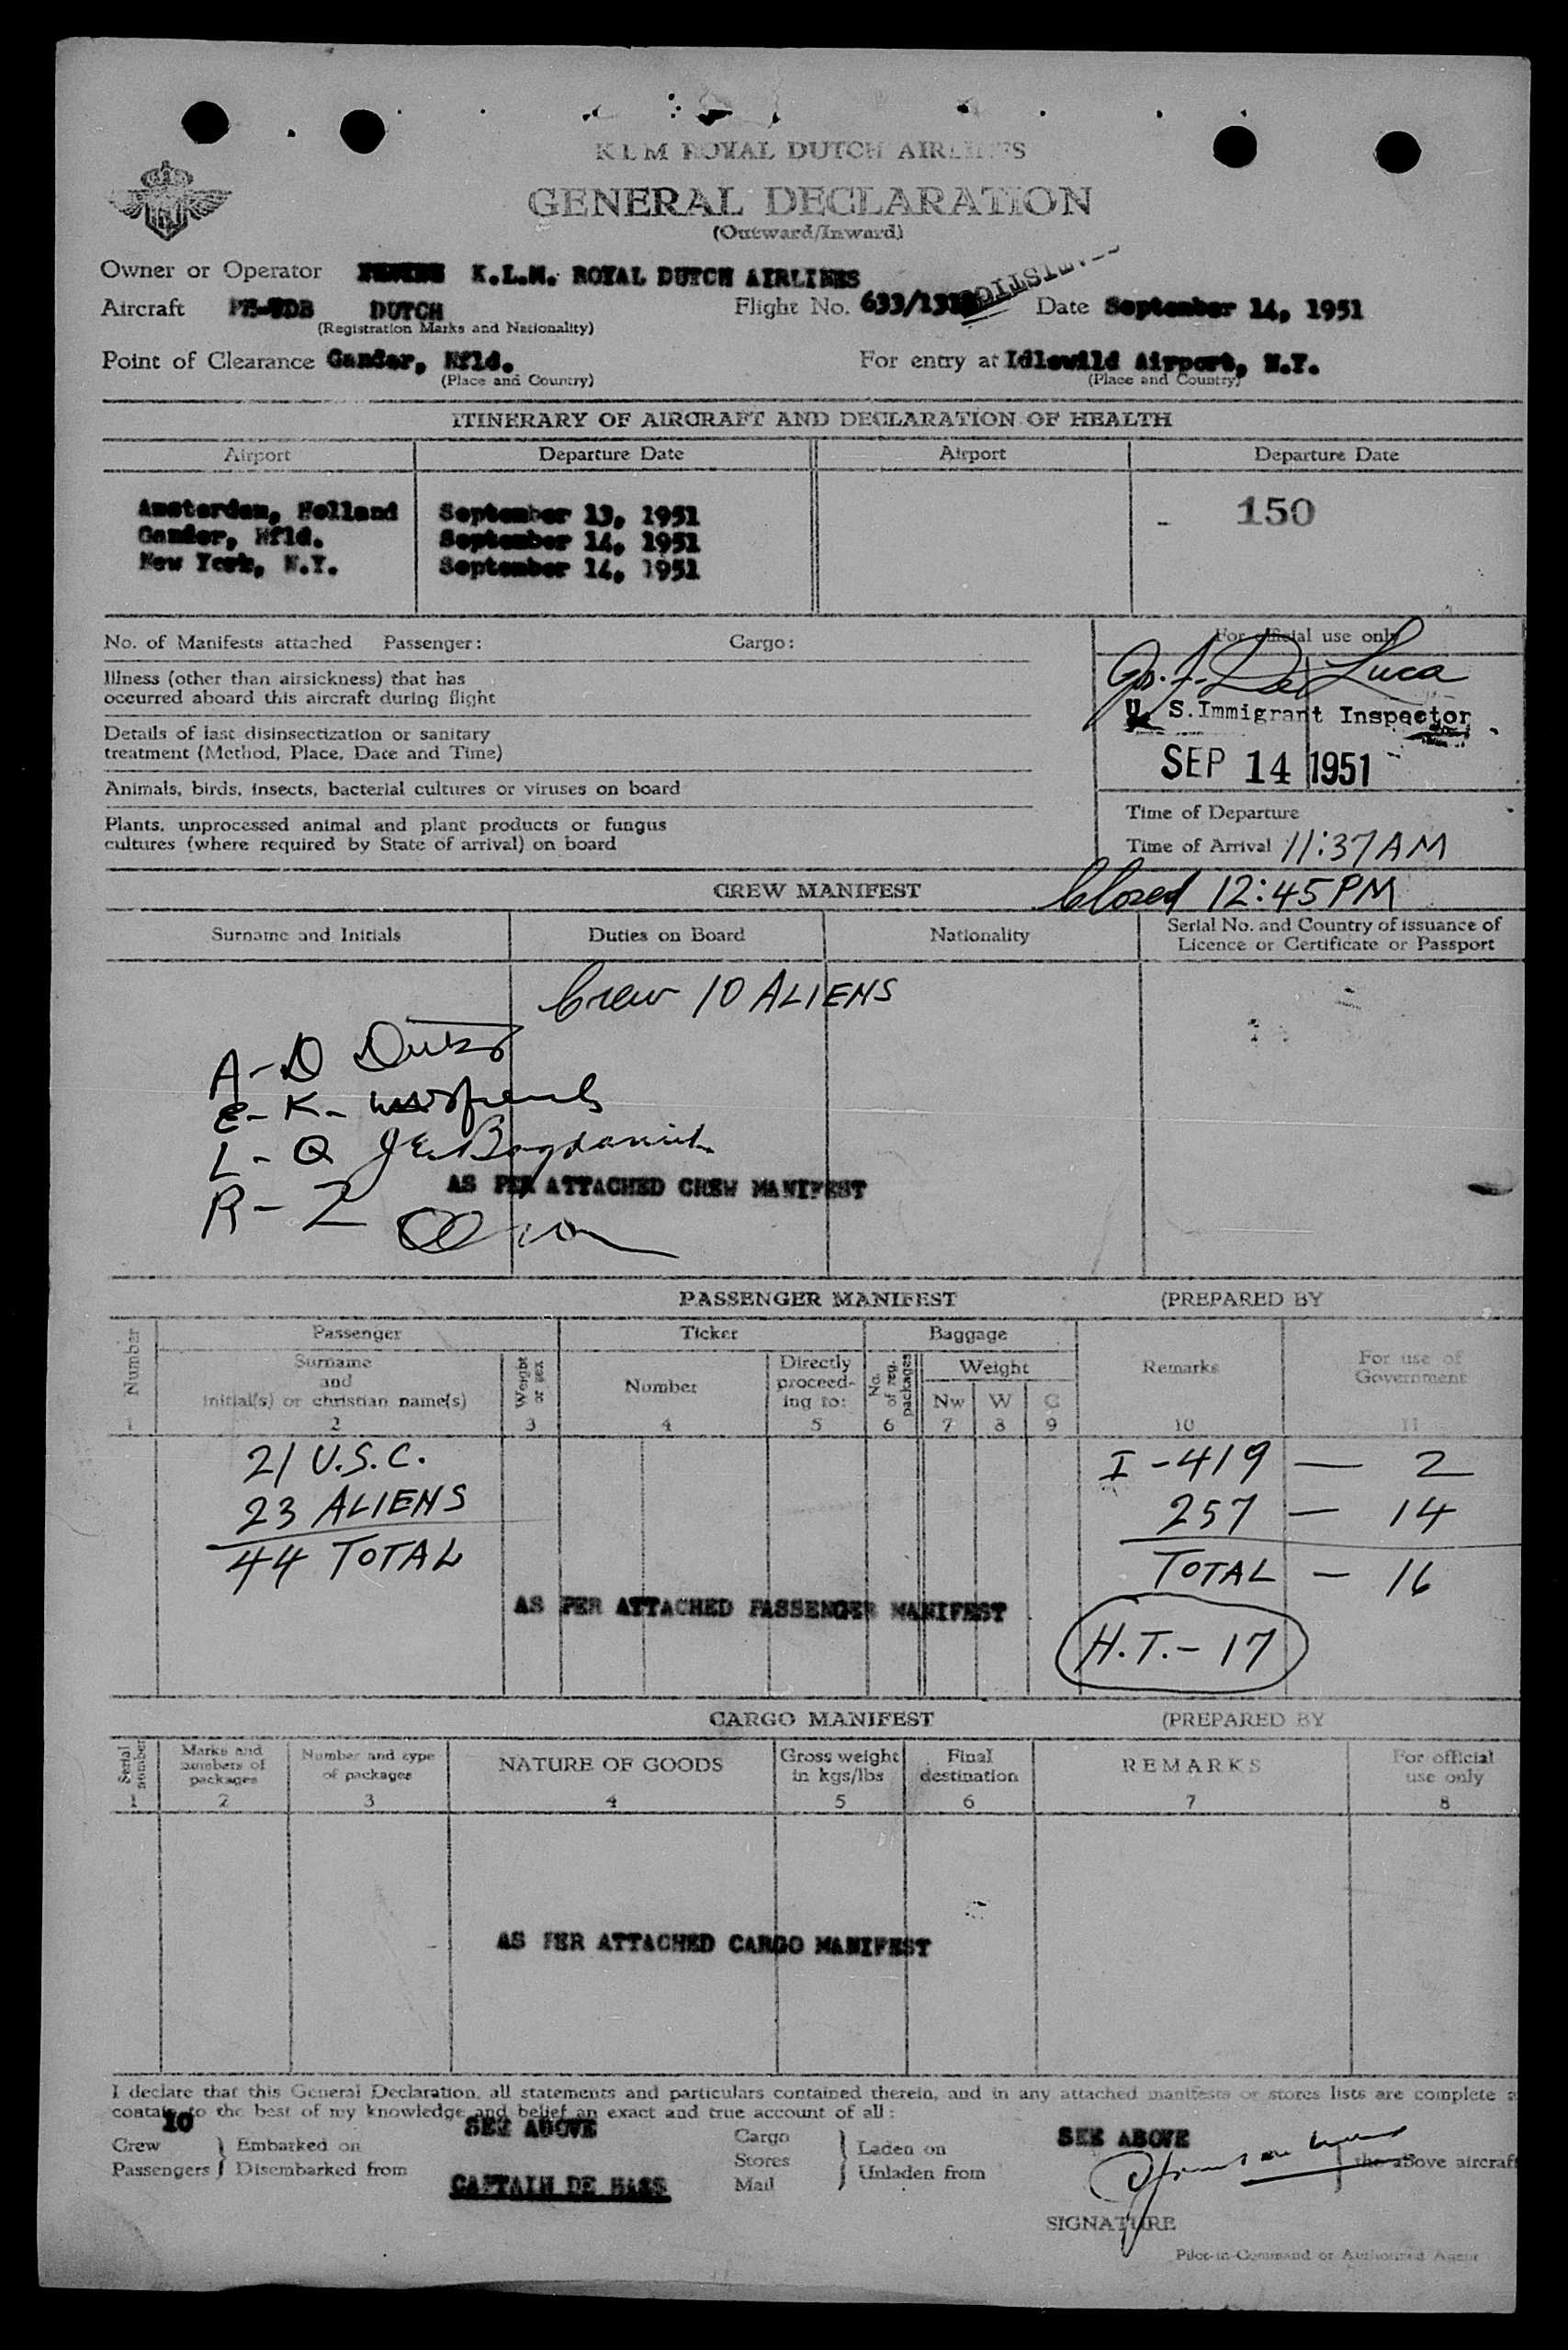 K L M ROYAL DUTCH AIRLINES
GENERAL DECLARATION
(Outward/Inward)
Owner or Operator K.L.M. ROYAL DUTCH AIRLINES
Aircraft DUTCH Flight No. Date September 14, 1951
(Registration Marks and Nationality)
Point of Clearance Gander, Nfld. For entry at Idlewild Airport, N.Y.
(Place and Country) (Place and Country)
ITINERARY OF AIRCRAFT AND DECLARATION OF HEALTH
Airport Departure Date Airport Departure Date
150
Amsterdam, Holland September 13, 1951
Gander, Nfld. September 14, 1951
New York, N.Y. September 14, 1951
No. of Manifests attached Passenger: Cargo: For official use only
Illness (other than airsickness) that has
occurred aboard this aircraft during flight
De Luca
U. S. Immigrant Inspector
Details of last disinsectization or sanitary
treatment (Method, Place, Date and Time)
SEP 14 1951
Animals, birds, insects, bacterial cultures or viruses on board
Plants, unprocessed animal and plant products or fungus
cultures (where required by State of arrival) on board
Time of Departure
Time of Arrival 11:37 AM
CREW MANIFEST Closed 12:45 PM
Surname and Initials Duties on Board Nationality Serial No. and Country of issuance of
Licence or Certificate or Passport
Crew 10 ALIENS
A-D
E-K-
L-Q
AS PER ATTACHED CREW MANIFEST
R-Z
PASSENGER MANIFEST (PREPARED BY
Number Passenger Ticket Baggage Remarks For use of
Government
Surname
and
initial(s) or christian name(s) Weight
or sex Number Directly
proceed-
ing to: No.
of reg.
packages Weight
Nw W C
1 2 3 4 5 6 7 8 9 10 11
21 U.S.C. I-419 — 2
23 ALIENS 257 — 14
44 TOTAL TOTAL — 16
AS PER ATTACHED PASSENGER MANIFEST
H.T.-17
CARGO MANIFEST (PREPARED BY
Serial
number Marks and
numbers of
packages Number and type
of packages NATURE OF GOODS Gross weight
in kgs/lbs Final
destination REMARKS For official
use only
1 2 3 4 5 6 7 8
AS PER ATTACHED CARGO MANIFEST
I declare that this General Declaration, all statements and particulars contained therein, and in any attached manifests or stores lists are complete a
contain to the best of my knowledge and belief an exact and true account of all:
10 SEE ABOVE SEE ABOVE
Crew } Embarked on Cargo } Laden on
Passengers } Disembarked from Stores Unladen from } the above aircraft
CAPTAIN DE HAAS Mail
SIGNATURE
Pilot-in-Command or Authorized Agent